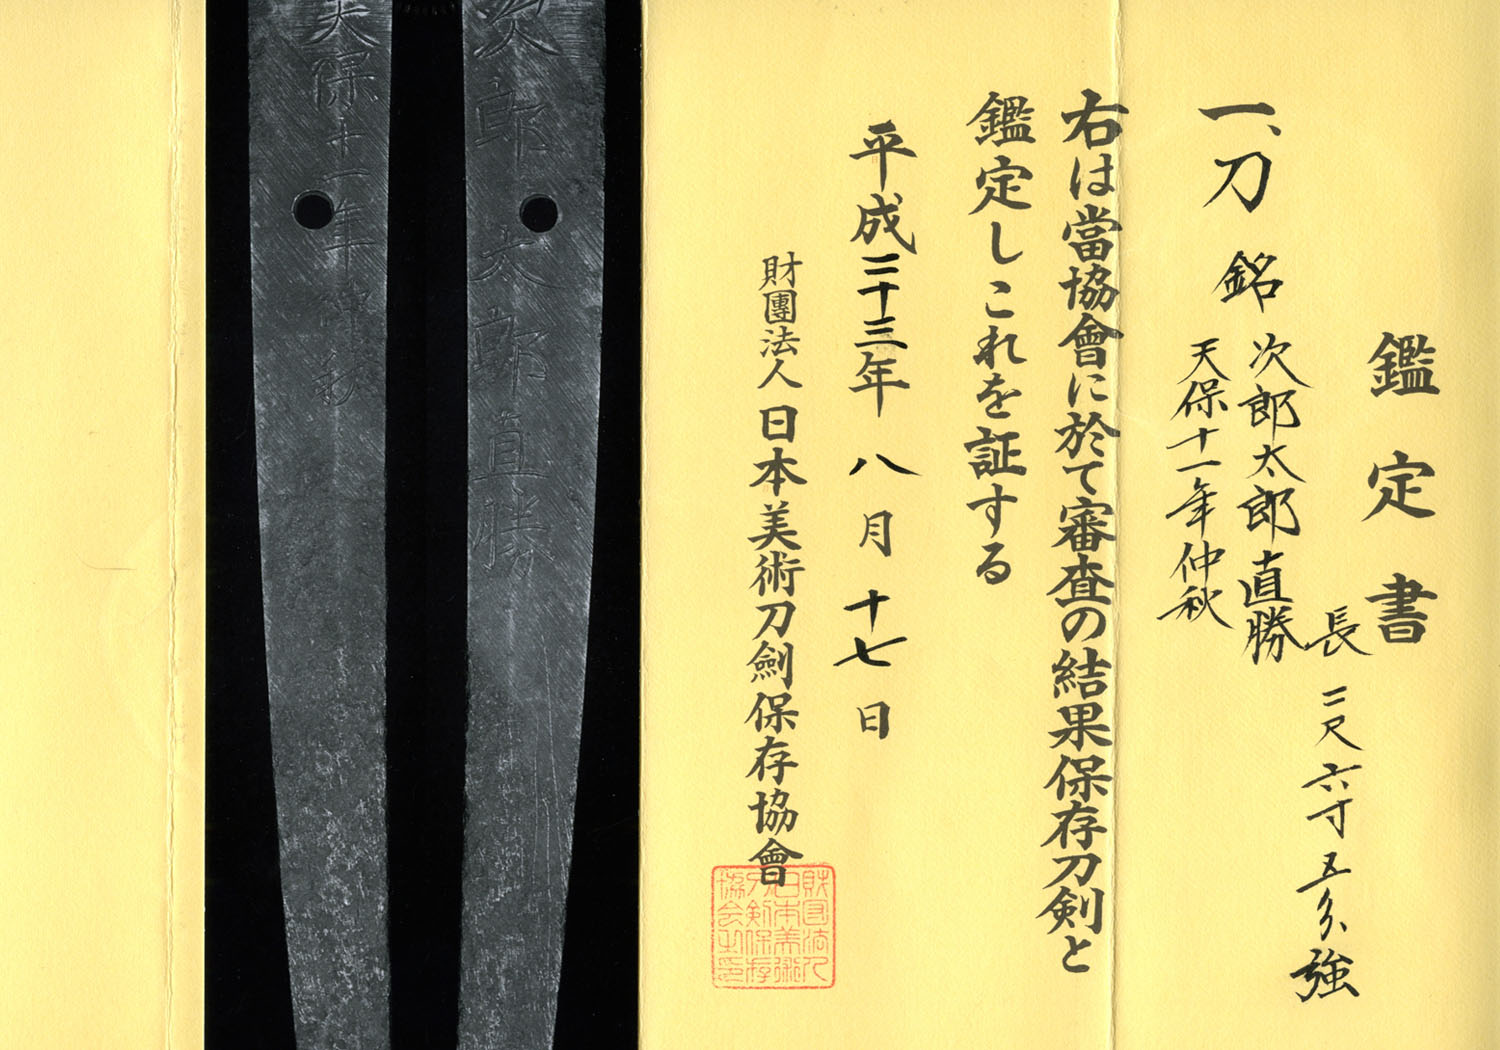 鑑定書
一、刀 銘 次郎太郎直勝
天保十一年仲秋
長 二尺六寸五分強
右は當協會に於て審査の結果保存刀剣と
鑑定しこれを証する
平成二十三年 八月 十七日
財團法人日本美術刀劍保存協會
財団法人
日本美術
刀剣保存
協会之印
次郎太郎直勝
天保十一年仲秋